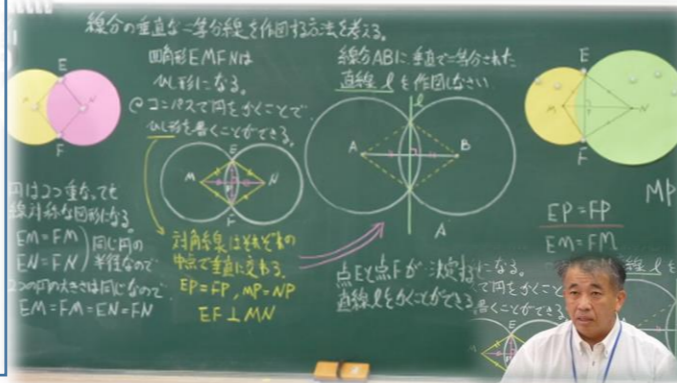 線分の垂直な二等分線を作図する方法を考える。
四角形EMFNは
ひし形になる。
コンパスで円をかくことで
ひし形を書くことができる。
線分ABに垂直で二等分された
直線ℓを作図しなさい
E
F
E
M
N
F
ℓ
A
B
A
E
M
N
F
円は2つ重なっても
線対称な図形になる。
EM=FM
EN=FN
同じ円の
半径なので
2つの円の大きさは同じなので
EM=FM=EN=FN
対角線はそれぞれの
中点で垂直に交わる。
EP=FP, MP=NP
EF⊥MN
点Eと点Fが決定する
直線ℓをかくことができる
MP
EP=FP
EM=FM
になる。
で円をかくこと
書くことができる